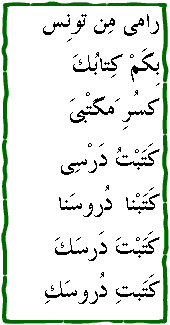 رامى مِن تونِس
بِكَمْ كِتابُكَ
كسُرِ َمكْتْبىَ
كَتَبْتُ دَرْسِى
كَتَبْنا دُروسَنا
كَتَبْتَ دَرسَكَ
كَتَبتِ دُروسَكِ